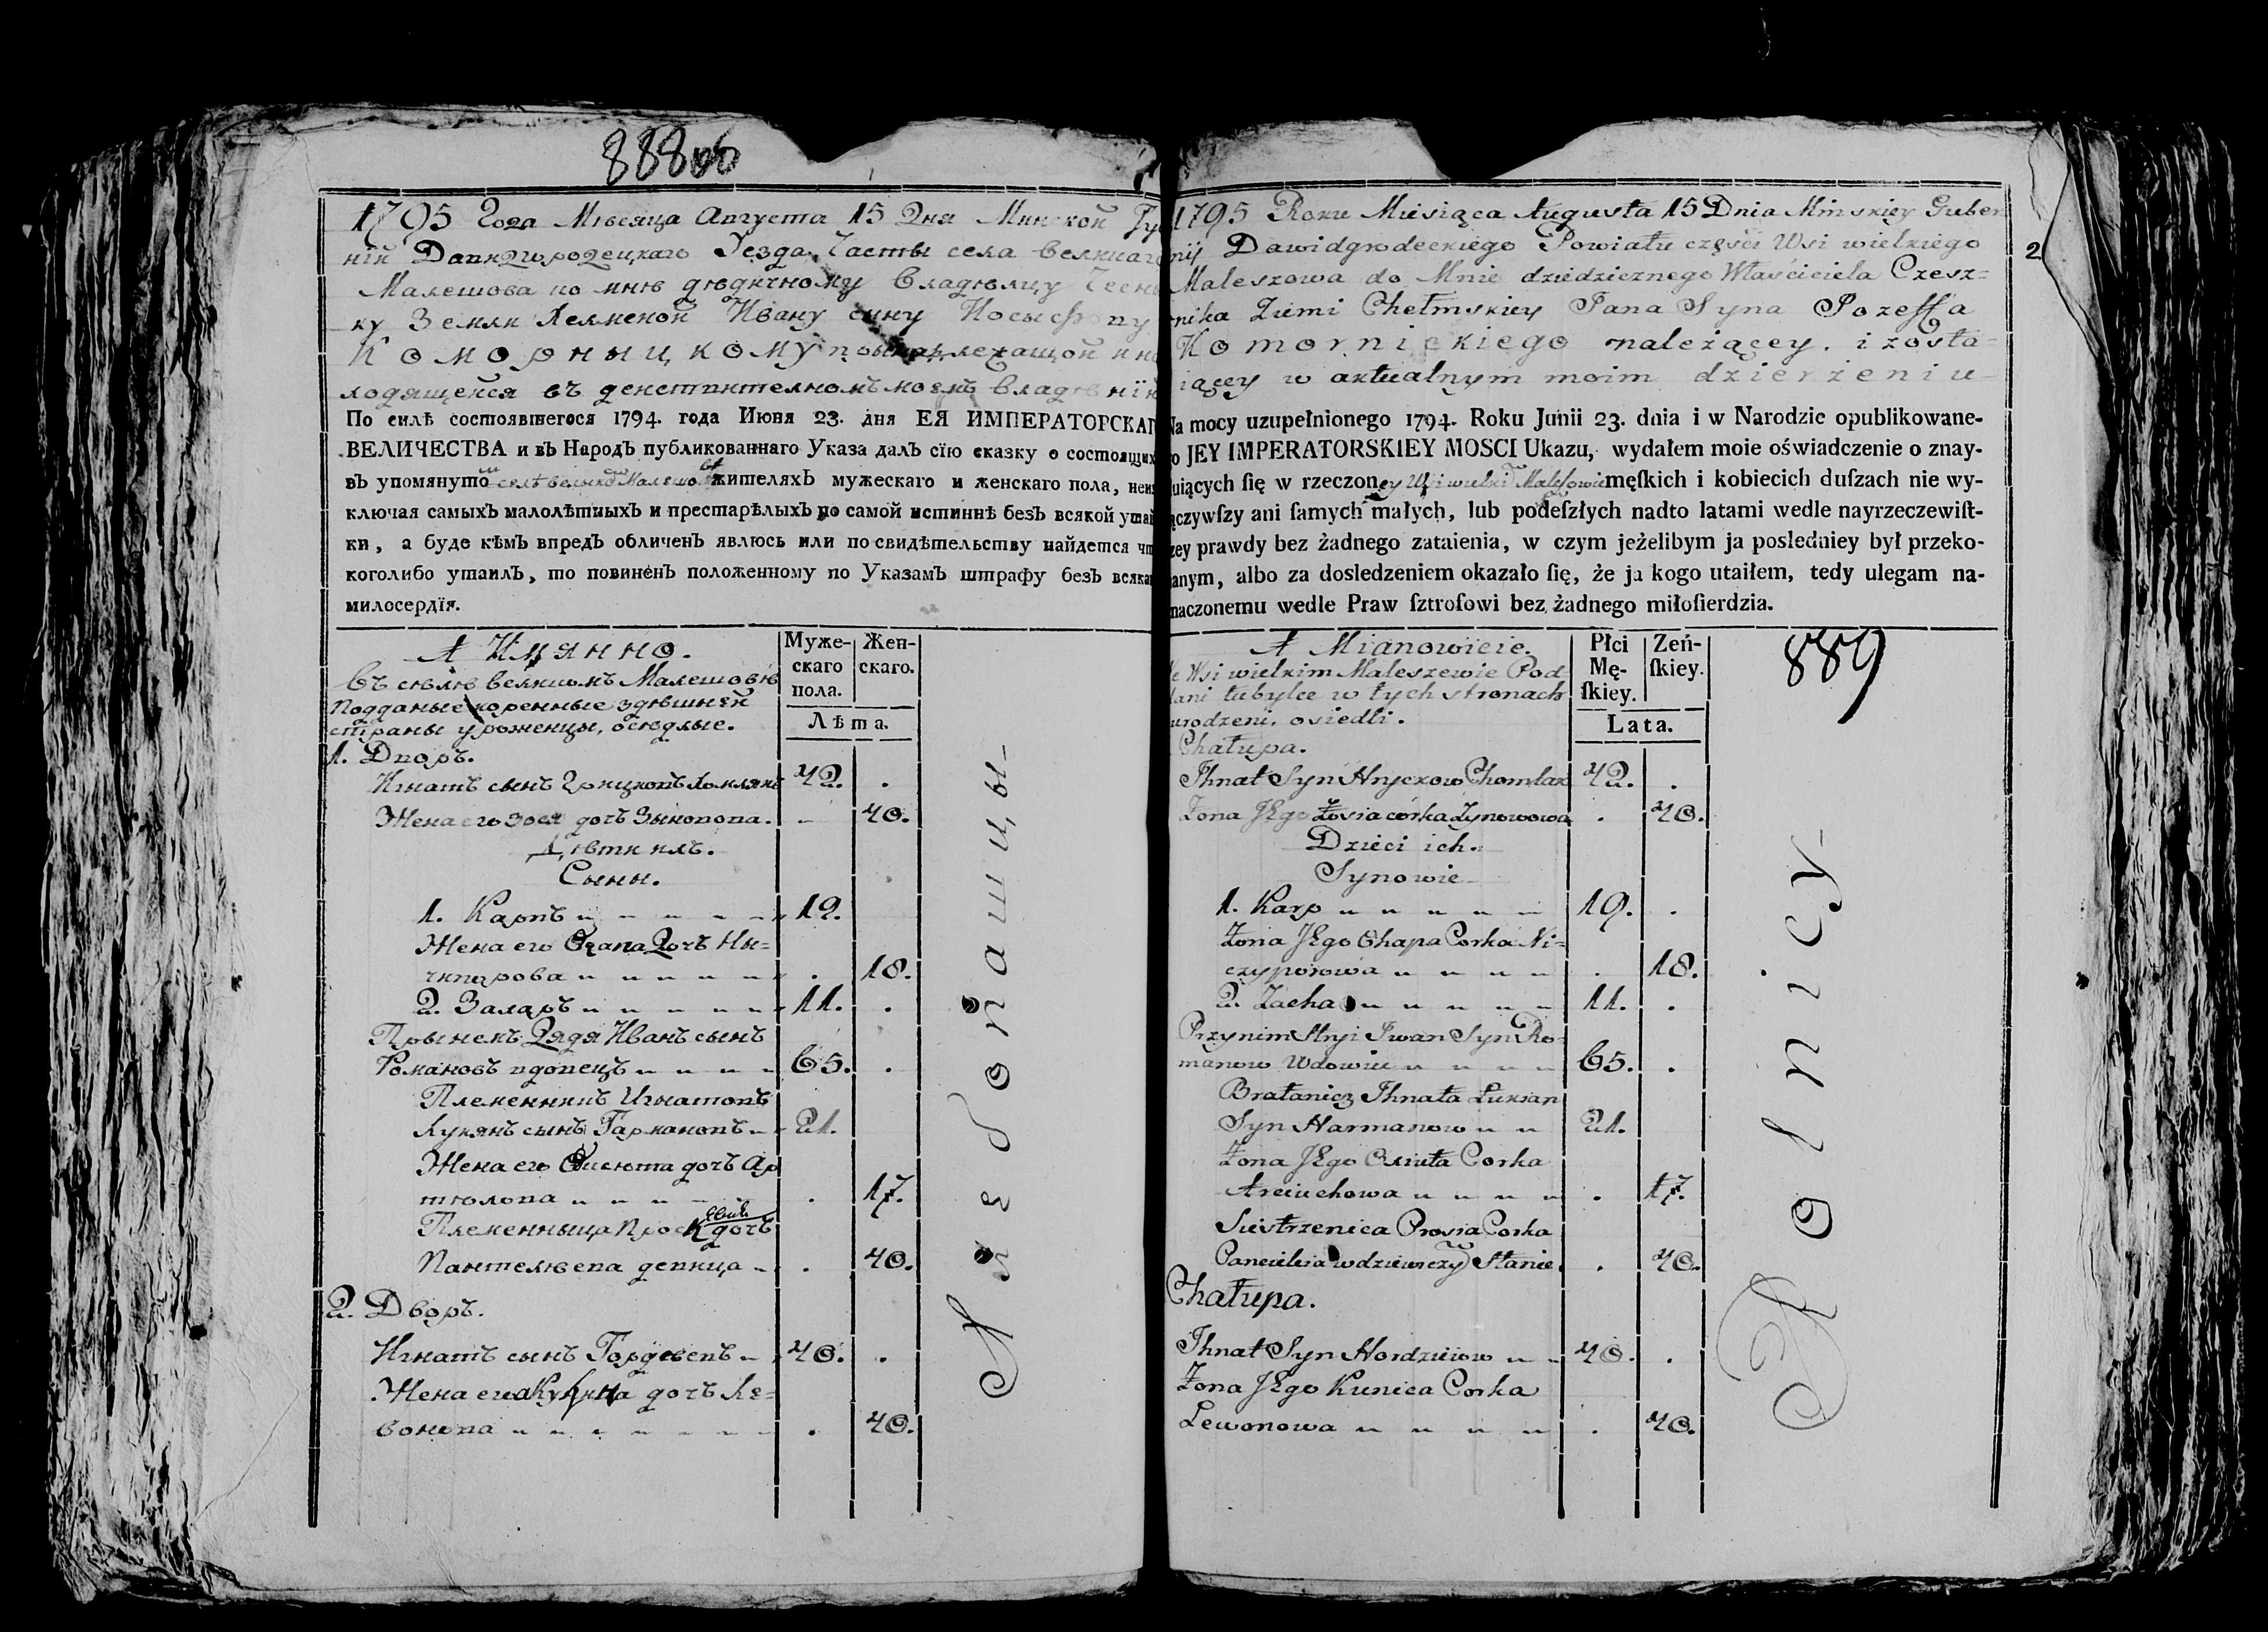 888об
1795 Года Мѣсяца Августа 15 Дня Минской Гу
нїи Давидгродецкаго Уезда Части села великаго
Малешова по мнѣ дѣдичному Владѣлцу Чесн
ку Земли Хелменой Ивану сыну Иосыфову
Коморныцкому принадлежащой и на
ходящейся въ действителномъ моемъ владѣнїи
По силѣ состоявшегося 1794. года Июня 23. дня ЕЯ ИМПЕРАТОРСКАГ
ВЕЛИЧЕСТВА и въ Народъ публикованнаго Указа далъ сїю сказку о состоящих
въ упомянуто селѣ великом Малешо жителяхъ мужескаго и женскаго пола, неис
ключая самыхъ малолѣтныхъ и престарѣлыхъ по самой истиннѣ безъ всякой утай
ки, а буде кѣмъ впредъ обличенъ явлюсь или по свидѣтельству найдется чт
коголибо утаилъ, то повинѐнъ положенному по Указамъ штрафу безъ всяка
милосердїя.
А Имянно.
Въ селѣ великомъ Малешовѣ
подданые коренные здѣшней
страны уроженцы, оседлые.
Муже-
скаго
пола.
Жен-
скаго.
Лѣта.
1. Дворъ.
Игнатъ сынъ Грицковъ Хомлякъ 42. .
Жена его Зося дочъ Зыновова. - 40.
Дѣти ихъ.
Сыны.
1. Карпъ 19.
Жена его Огапа Дочъ Ны=
чипарова . 18.
2. Захаръ 11. .
Прыймъ Дядя Иванъ сынъ
Романовъ вдовецъ 65. .
Племенникъ Игнатовъ
Лукянъ сынъ Гармановъ 21.
Жена его Оксюта дочъ Ар
тюхова . 17.
Племенныца Прося дочъ
Пантелѣева девица . 40.
2. Дворъ.
Игнатъ сынъ Гордѣевъ 40. .
Жена его Куница дочъ Ле=
вонова . 40.
Хлебопашцы
1795 Roku Miesiąca Augusta 15 Dnia Minskiey Guber
nij Dawidgrodeckiego Powiatu częsći Wsi wielkiego
Maleszowa do Mnie dziedzicznego Właściciela Czesz=
nika Ziemi Chełmskiey Jana Syna Jozeffa
Komornickiego należącey. i zosta=
iącey w aktualnym moim dzierżeniu
Na mocy uzupełnionego 1794. Roku Junii 23. dnia i w Narodzie opublikowane-
o JEY IMPERATORSKIEY MOSCI Ukazu, wydałem moie oświadczenie o znay-
uiących ſię w rzeczoney Wsi wielki Maleſzowie męſkich i kobiecich duſzach nie wy-
ączywſzy ani ſamych małych, lub podeſzłych nadto latami wedle nayrzeczewiſt-
zey prawdy bez żadnego zataienia, w czym jeżelibym ja posledniey był przeko-
anym, albo za dosledzeniem okazało ſię, że ja kogo utaiłem, tedy ulegam na-
naczonemu wedle Praw ſztrofowi bez żadnego miłoſierdzia.
2
A Mianowicie.
We Wsi wielkim Maleszewie Pod
dani tubylce w tych stronach
urodzeni, osiedli.
Płci
Mę-
ſkiey.
Zeń-
ſkiey.
Lata.
889
Chałupa.
Ihnat Syn Hryckow Chomlak 42. .
Zona JEgo Zosia corka Zynowowa . 40.
Dzieci ich.
Synowie
1. Karp 19. .
Zona JEgo Ohapa Corka Ni=
czyporowa . 18.
2. Zachar 11. .
Przynim Stryi Iwan Syn Ro-
manow Wdowiec 65. .
Bratanicz Ihnata Łukian
Syn Harmanow 21.
Zona JEgo Oxiuta Corka
Arciuchowa . 17.
Siestrzenica Prosia Corka
Pancielėia w dziewiczy Stanie . 40.
Chałupa.
Ihnat Syn Hordzieiow 40. .
Zona JEgo Kunica Corka
Lewonowa . 40.
Rolnicy